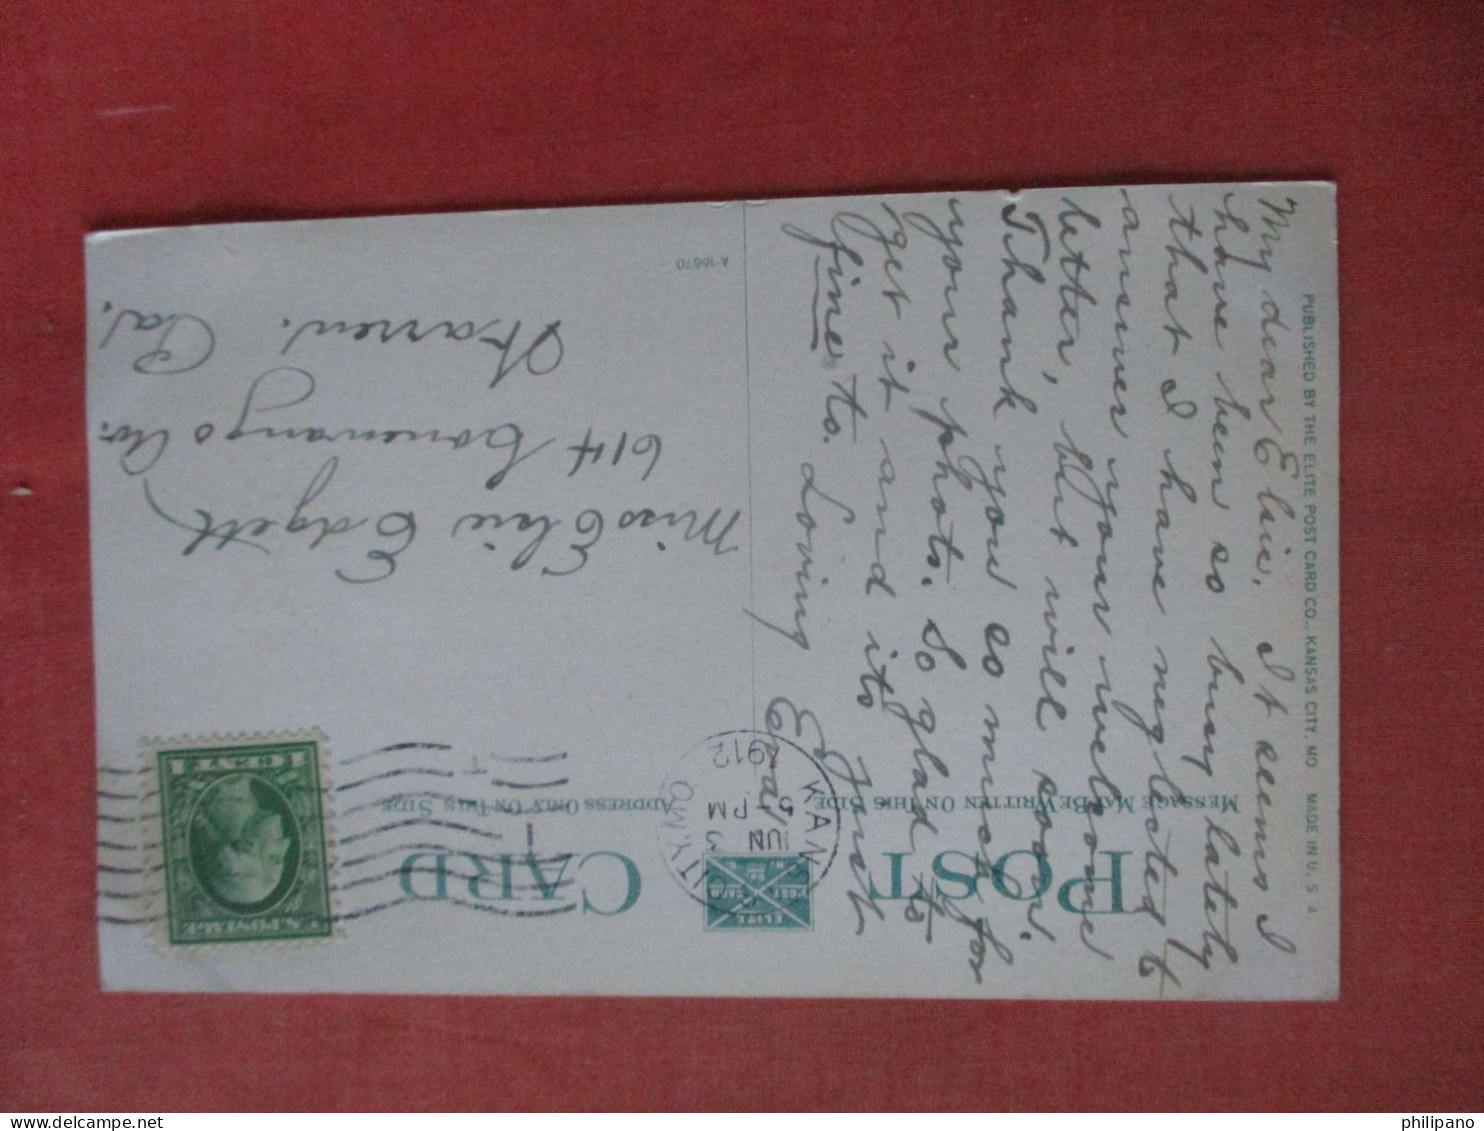 PUBLISHED BY THE ELITE POST CARD CO., KANSAS CITY, MO. MADE IN U. S. A.
POST CARD
MESSAGE MAY BE WRITTEN ON THIS SIDE
ADDRESS ONLY ON THIS SIDE
ELITE
POST CARD
CO.
My dear Elsie. It seems I
have been so busy lately
that I have neglected to
answer your welcome
letter, but will soon.
Thank you so much for
your photo. So glad to
get it and its just
fine to. Loving
KANS
CITY, MO.
JUN 3
5-PM
1912
U.S. POSTAGE
1 CENT 1
Miss Elsie Edgett
614 Conewango Av.
Warren.
Pa.
A-16670
delcampe.net
philipano